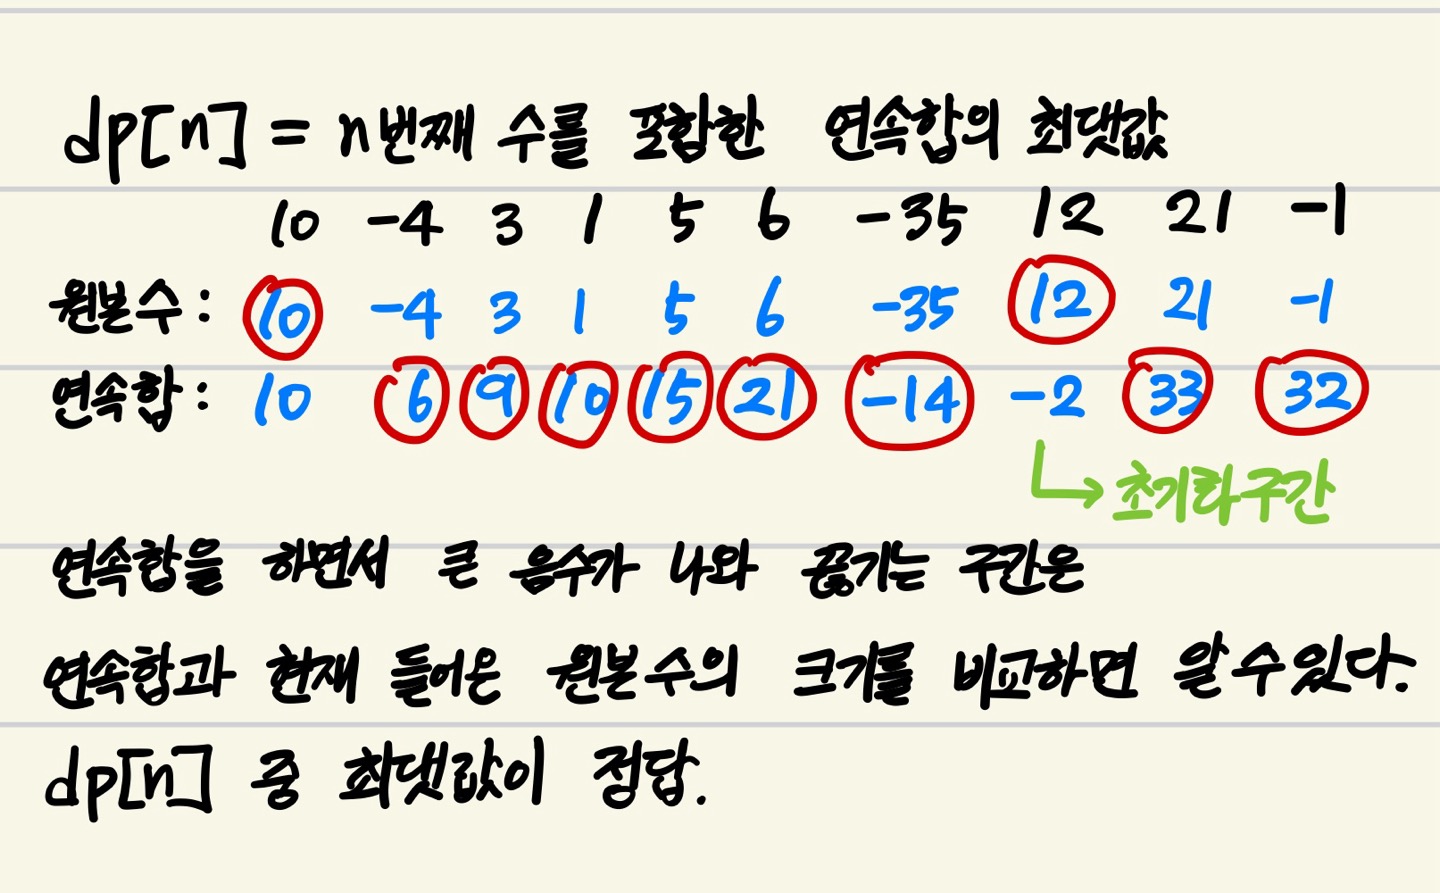 dp[n] = n번째 수를 포함한 연속합의 최댓값
10 -4 3 1 5 6 -35 12 21 -1
원본수: 10 -4 3 1 5 6 -35 12 21 -1
연속합: 10 6 9 10 15 21 -14 -2 33 32
초기화구간
연속합을 하면서 큰 음수가 나와 끊기는 구간은
연속합과 현재 들어온 원본수의 크기를 비교하면 알수있다.
dp[n] 중 최댓값이 정답.